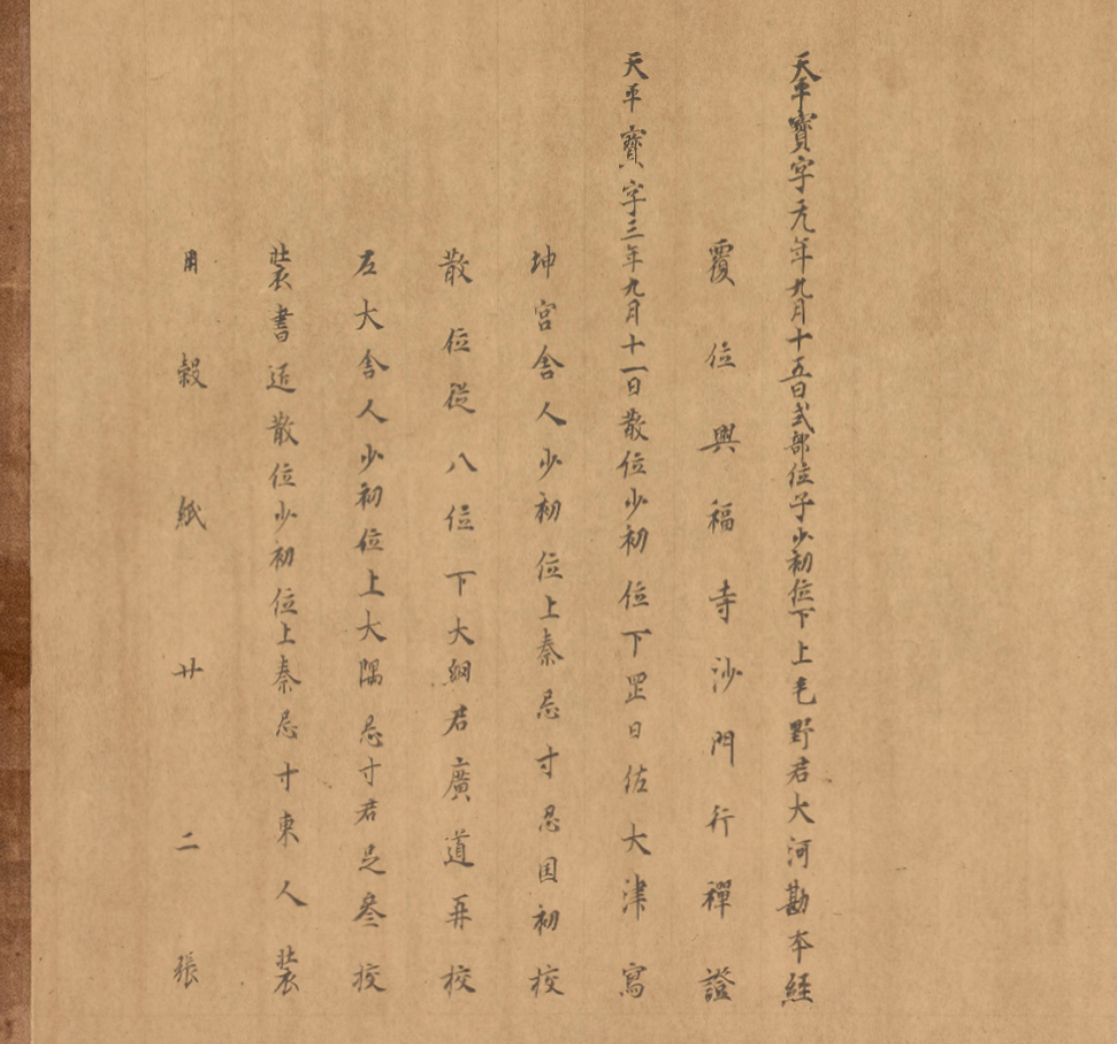 天平寶字元年九月十五日式部位子少初位下上毛野君大河勘本経
覆位興福寺沙門行禪證
天平寶字三年九月十一日散位少初位下罡日佐大津寫
坤宮舎人少初位上秦忌寸忍国初校
散位従八位下大網君廣道再校
左大舎人少初位上大隅忌寸君足叄校
装書近散位少初位上秦忌寸東人装
用穀紙廿二張